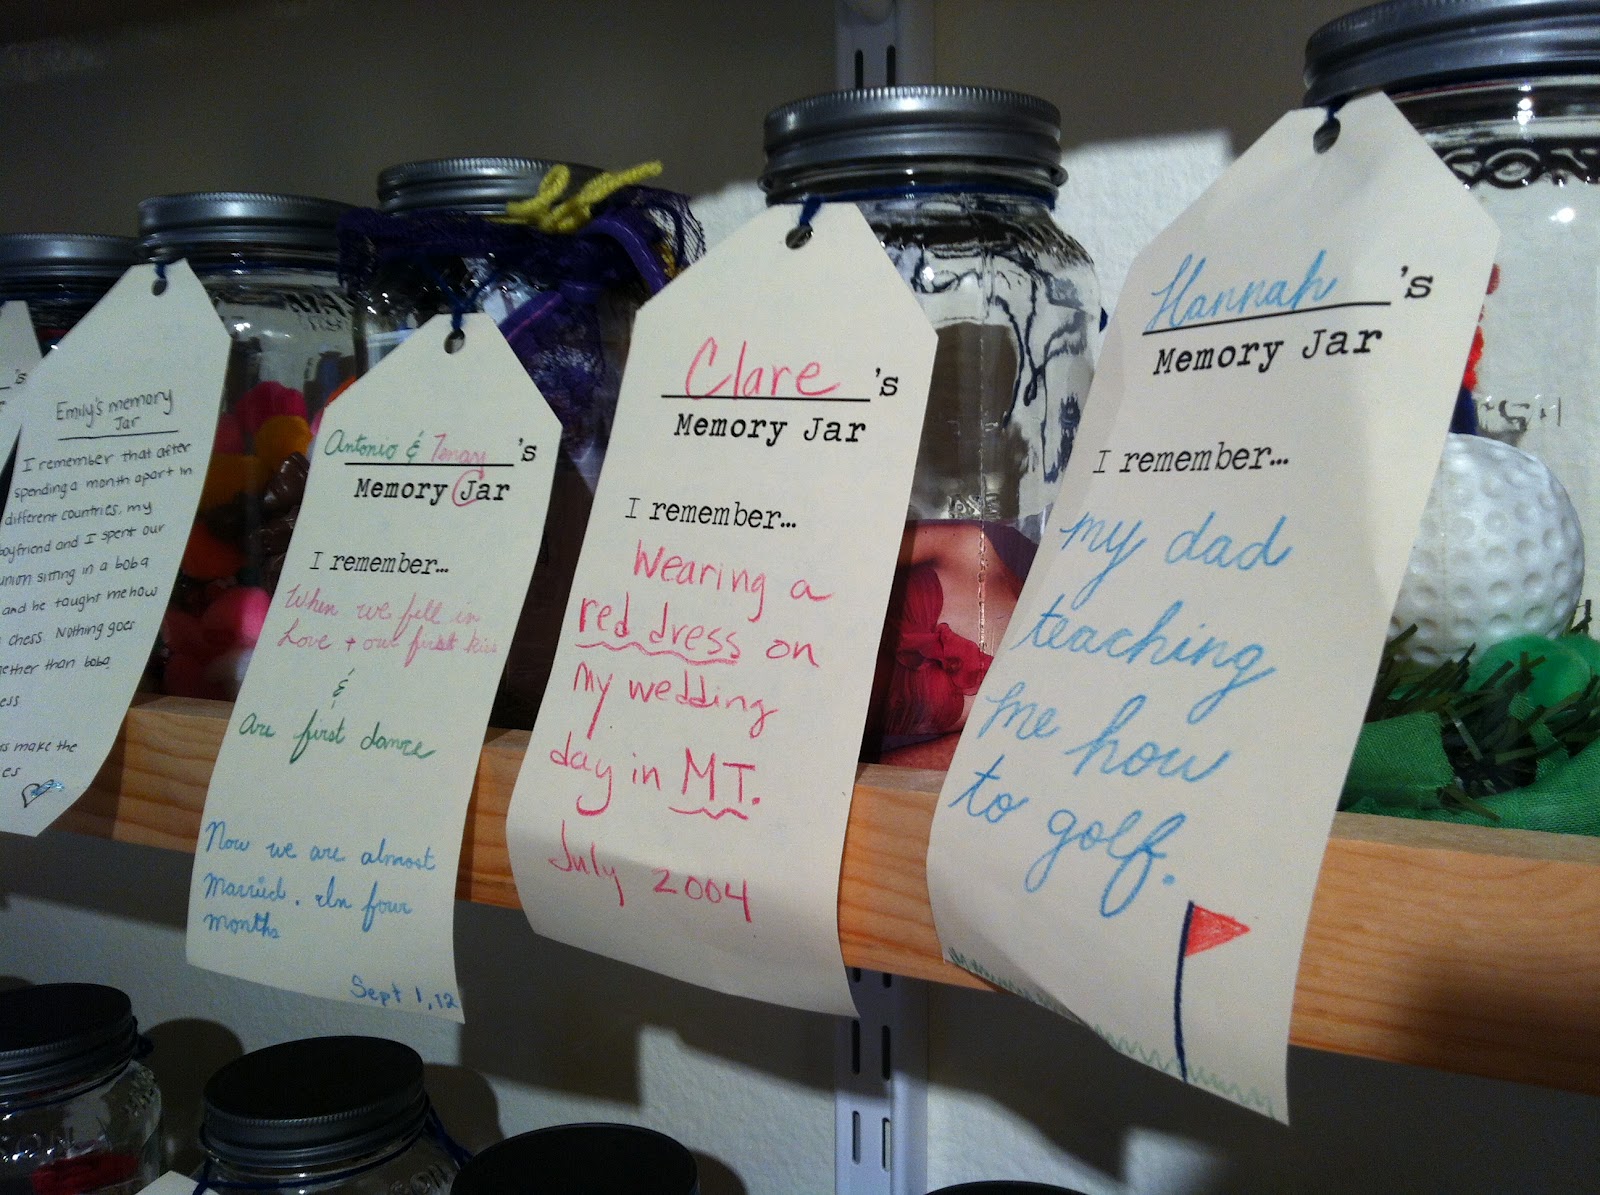 's
Emily's memory
Jar
I remember that after
spending a month apart in
different countries, my
boyfriend and I spent our
union sitting in a boba
and he taught me how
chess. Nothing goes
gether than boba
ess
make the
es
Antonio & Tenay's
Memory Jar
I remember...
When we fell in
Love + our first kiss
&
Are first dance
Now we are almost
Married. In four
months
Sept 1, 12
Clare's
Memory Jar
I remember...
Wearing a
red dress on
my wedding
day in MT.
July 2004
Hannah's
Memory Jar
I remember...
my dad
teaching
me how
to golf.